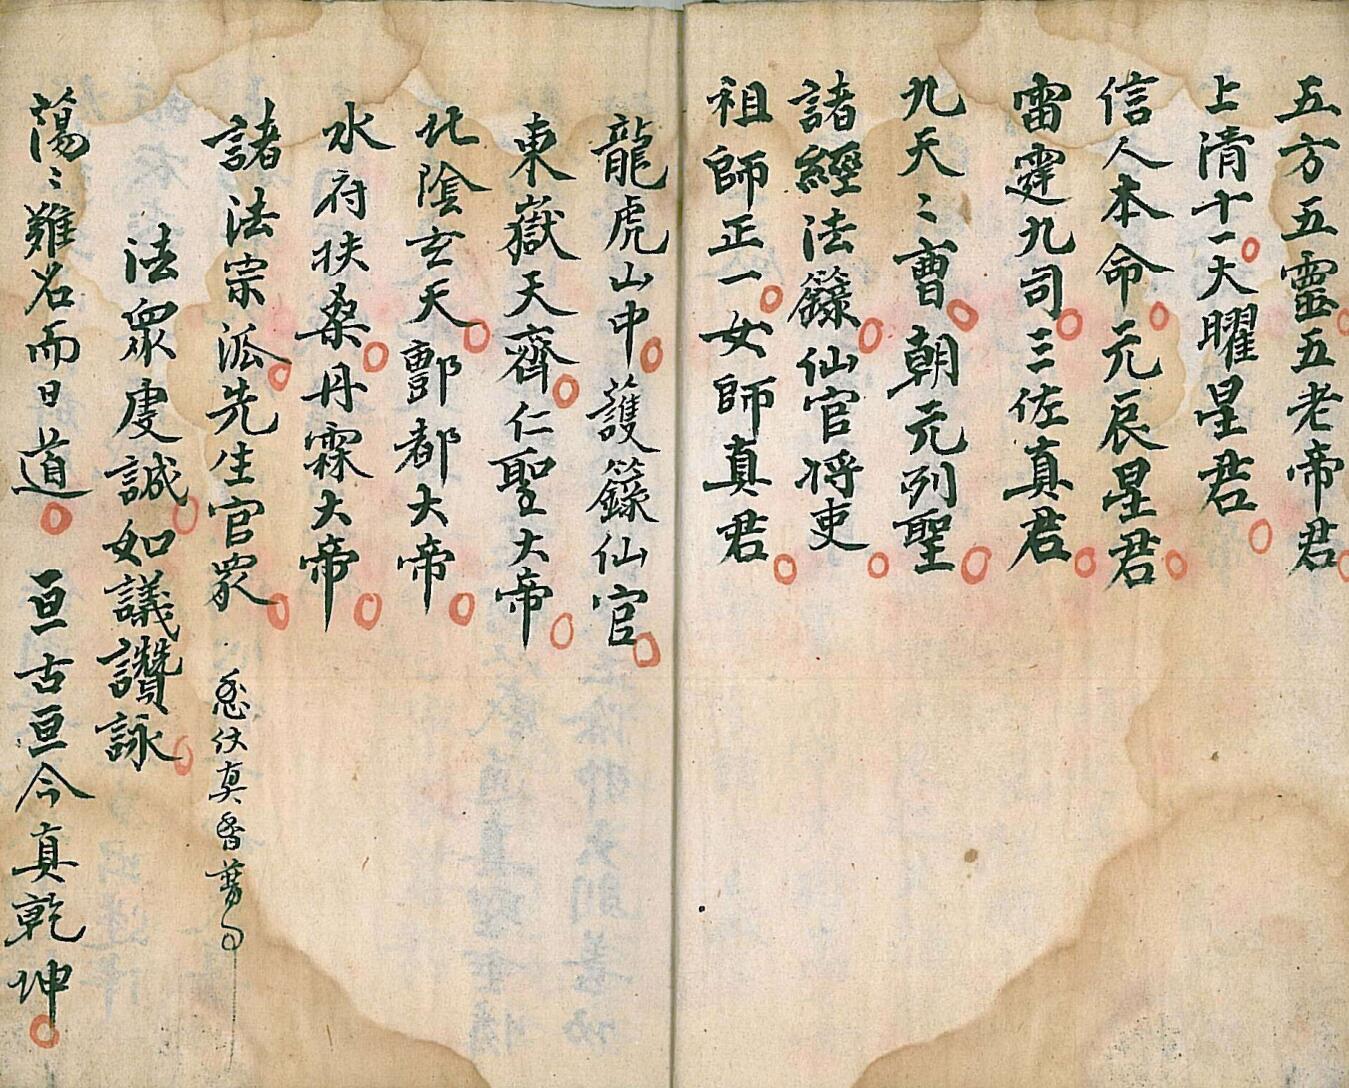 五方五靈五老帝君
上清十一大曜星君
信人本命元辰星君
雷霆九司三佐真君
九天〻曹朝元列聖
諸經法籙仙官将吏
祖師正一女師真君
龍虎山中護籙仙官
東嶽天齊仁聖大帝
北隂玄天酆都大帝
水府扶桑丹霖大帝
諸法宗派先生官眾 悉仗真香普
法眾虔誠如議讚詠
蕩〻難名而曰道 亘古亘今真乾坤